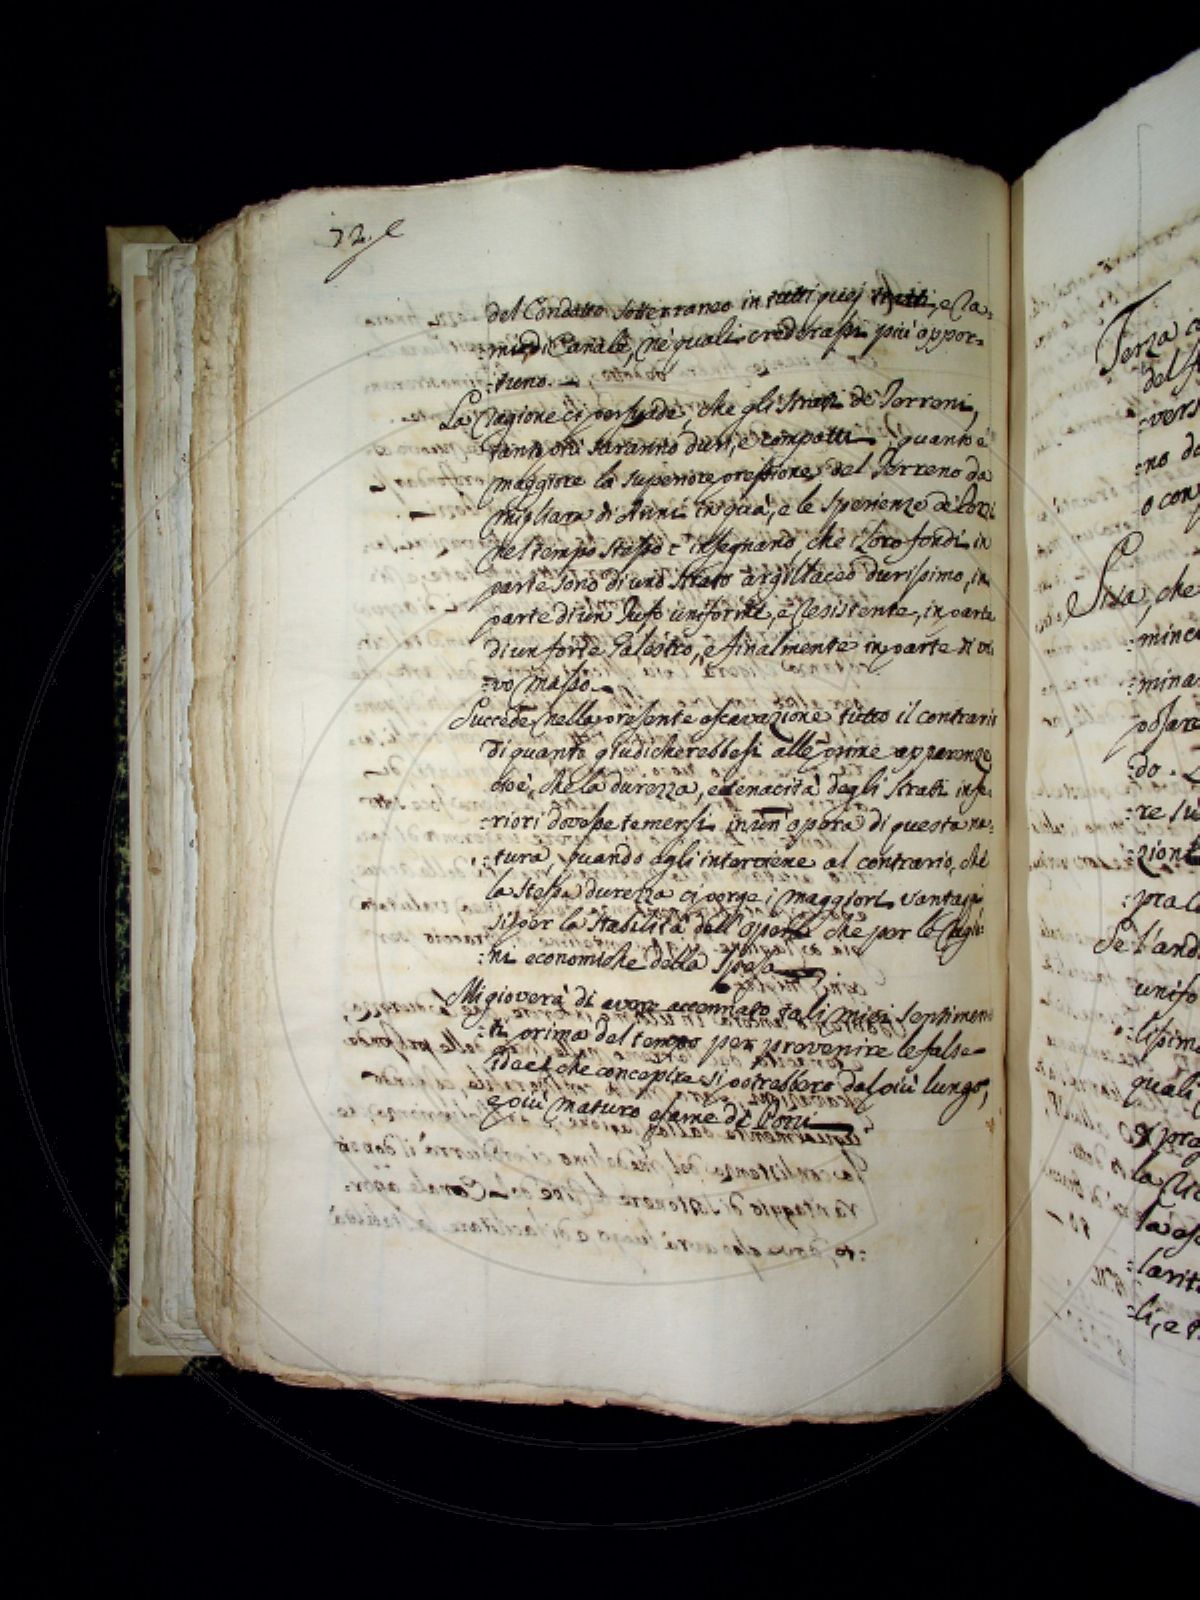 72.
del Condotto sotterraneo in tutti quej tratti, e ra:
:mi di Canale, ne' quali crederassi più oppor=
:tuno.
La Ragione ci persuade, che gli strati de' Terreni,
tanto più saranno duri, e compatti, quanto è
maggiore la superiore pressione del Terreno da
migliara di Anni in quà, e le sperienze de' Pozzi
nel tempo stesso c' insegnano, che i loro fondi in
parte sono di uno strato argillaceo durissimo, in
parte di un Tufo uniforme, e resistente, in parte
di un forte Galestro, e finalmente in parte di vi:
:vo Masso.
Succede nella presente escavazione tutto il contrario
di quanto giudicherebbesi alle prime apparenze
cioè, che la durezza, e tenacità degli strati infe:
:riori dovesse temersi in un' opera di questa na:
:tura, quando egli interviene al contrario, che
la stessa durezza ci porge i maggiori vantaggi
sì per la stabilità dell' opera, che per le Ragio:
:ni economiche della Spesa.
Mi gioverà di avere accennato tali miei sentimen:
:ti prima del tempo per provenire le false
Idee, che concepire si potrebbero dal più lungo,
e più maturo esame de' Pozzi
Terza
del
:vers
:no
o con
Sisa, che
:minc
:mina
possare
:do.
:re su
:zione
:pra l
Se l'and
unifo
:lissim
quali
e pra
la
la
:larit
:li, e